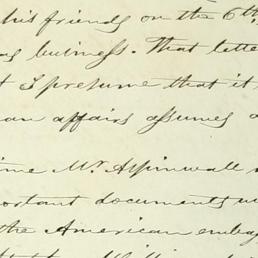 his friends on the 6th
business. That lette
I presume that it
an affairs assumes a
ime Mr. Aspinwall
portant documents
the American embas